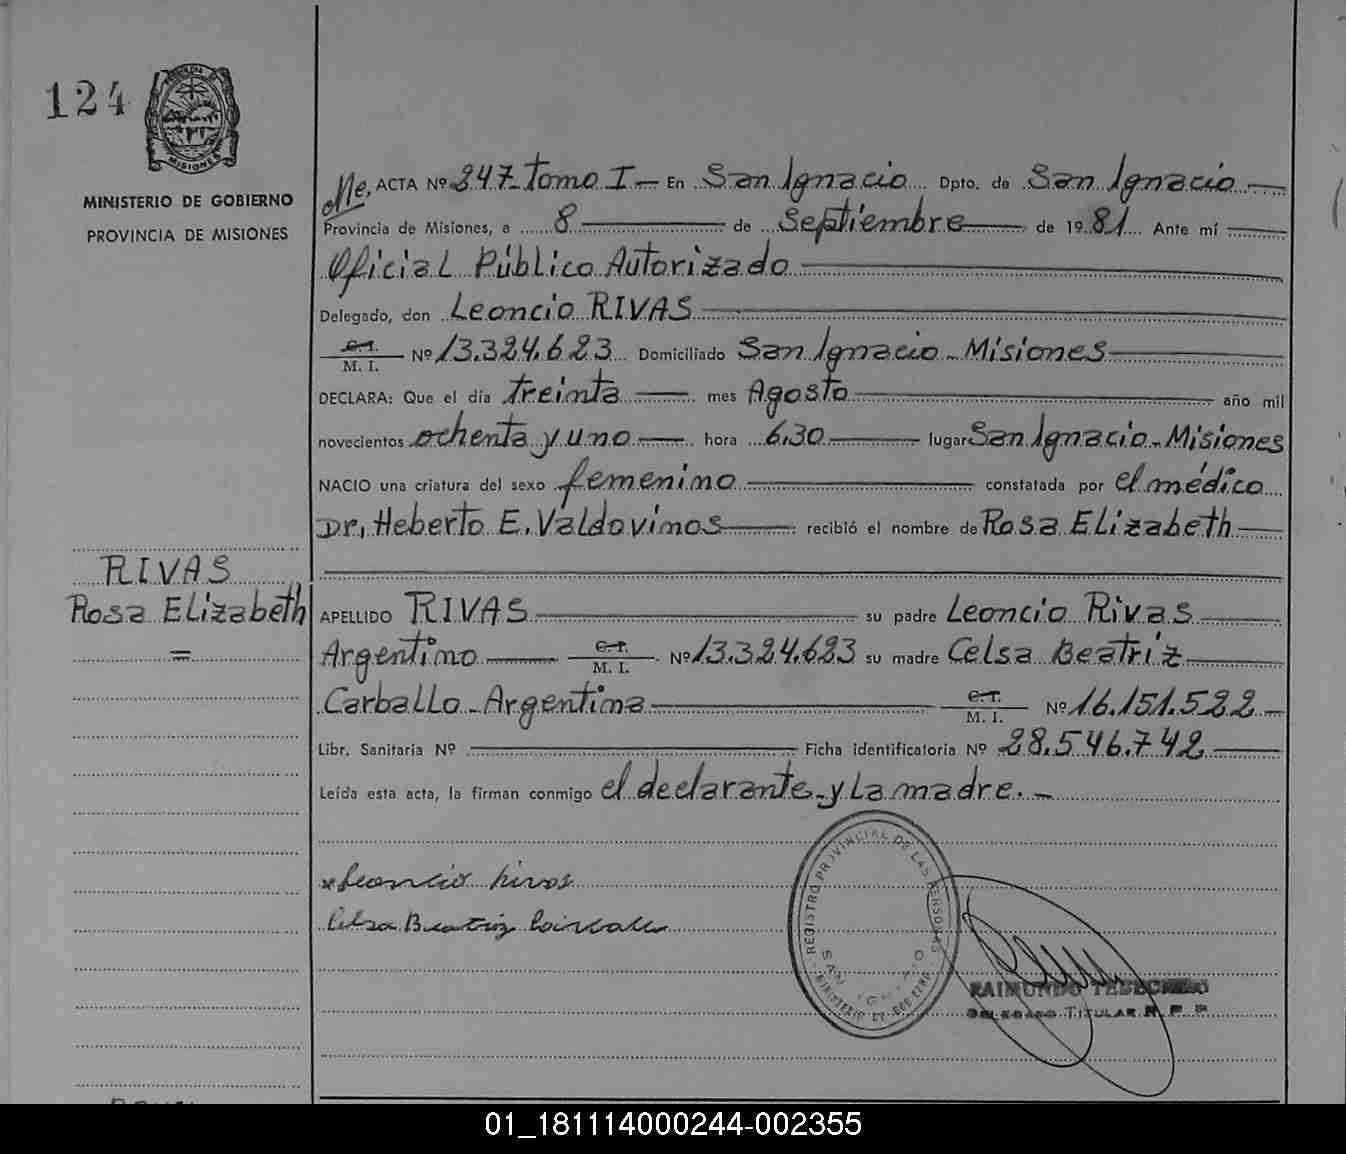 124
MISIONES
MINISTERIO DE GOBIERNO
PROVINCIA DE MISIONES
Me. ACTA Nº 247-Tomo I- En San Ignacio Dpto. de San Ignacio
Provincia de Misiones, a 8 de Septiembre de 1981 Ante mí
Oficial Público Autorizado
Delegado, don Leoncio RIVAS
C.I. M. I. Nº 13.324.623 Domiciliado San Ignacio - Misiones
DECLARA: Que el día treinta mes Agosto año mil
novecientos ochenta y uno hora 6,30 lugar San Ignacio - Misiones
NACIO una criatura del sexo femenino constatada por el médico
Dr. Heberto E. Valdovinos recibió el nombre de Rosa Elizabeth
RIVAS
Rosa Elizabeth
=
APELLIDO RIVAS su padre Leoncio Rivas
Argentino C.I. M. I. Nº 13.324.623 su madre Celsa Beatriz
Carballo - Argentina C.I. M. I. Nº 16.151.522
Libr. Sanitaria Nº Ficha identificatoria Nº 28.546.742
Leída esta acta, la firman conmigo el declarante - y la madre. -
Leoncio Rivas
Celsa Beatriz Carballo
REGISTRO PROVINCIAL DE LAS PERSONAS
SAN IGNACIO
RAIMUNDO
DELEGADO TITULAR R. P. P.
01_181114000244-002355